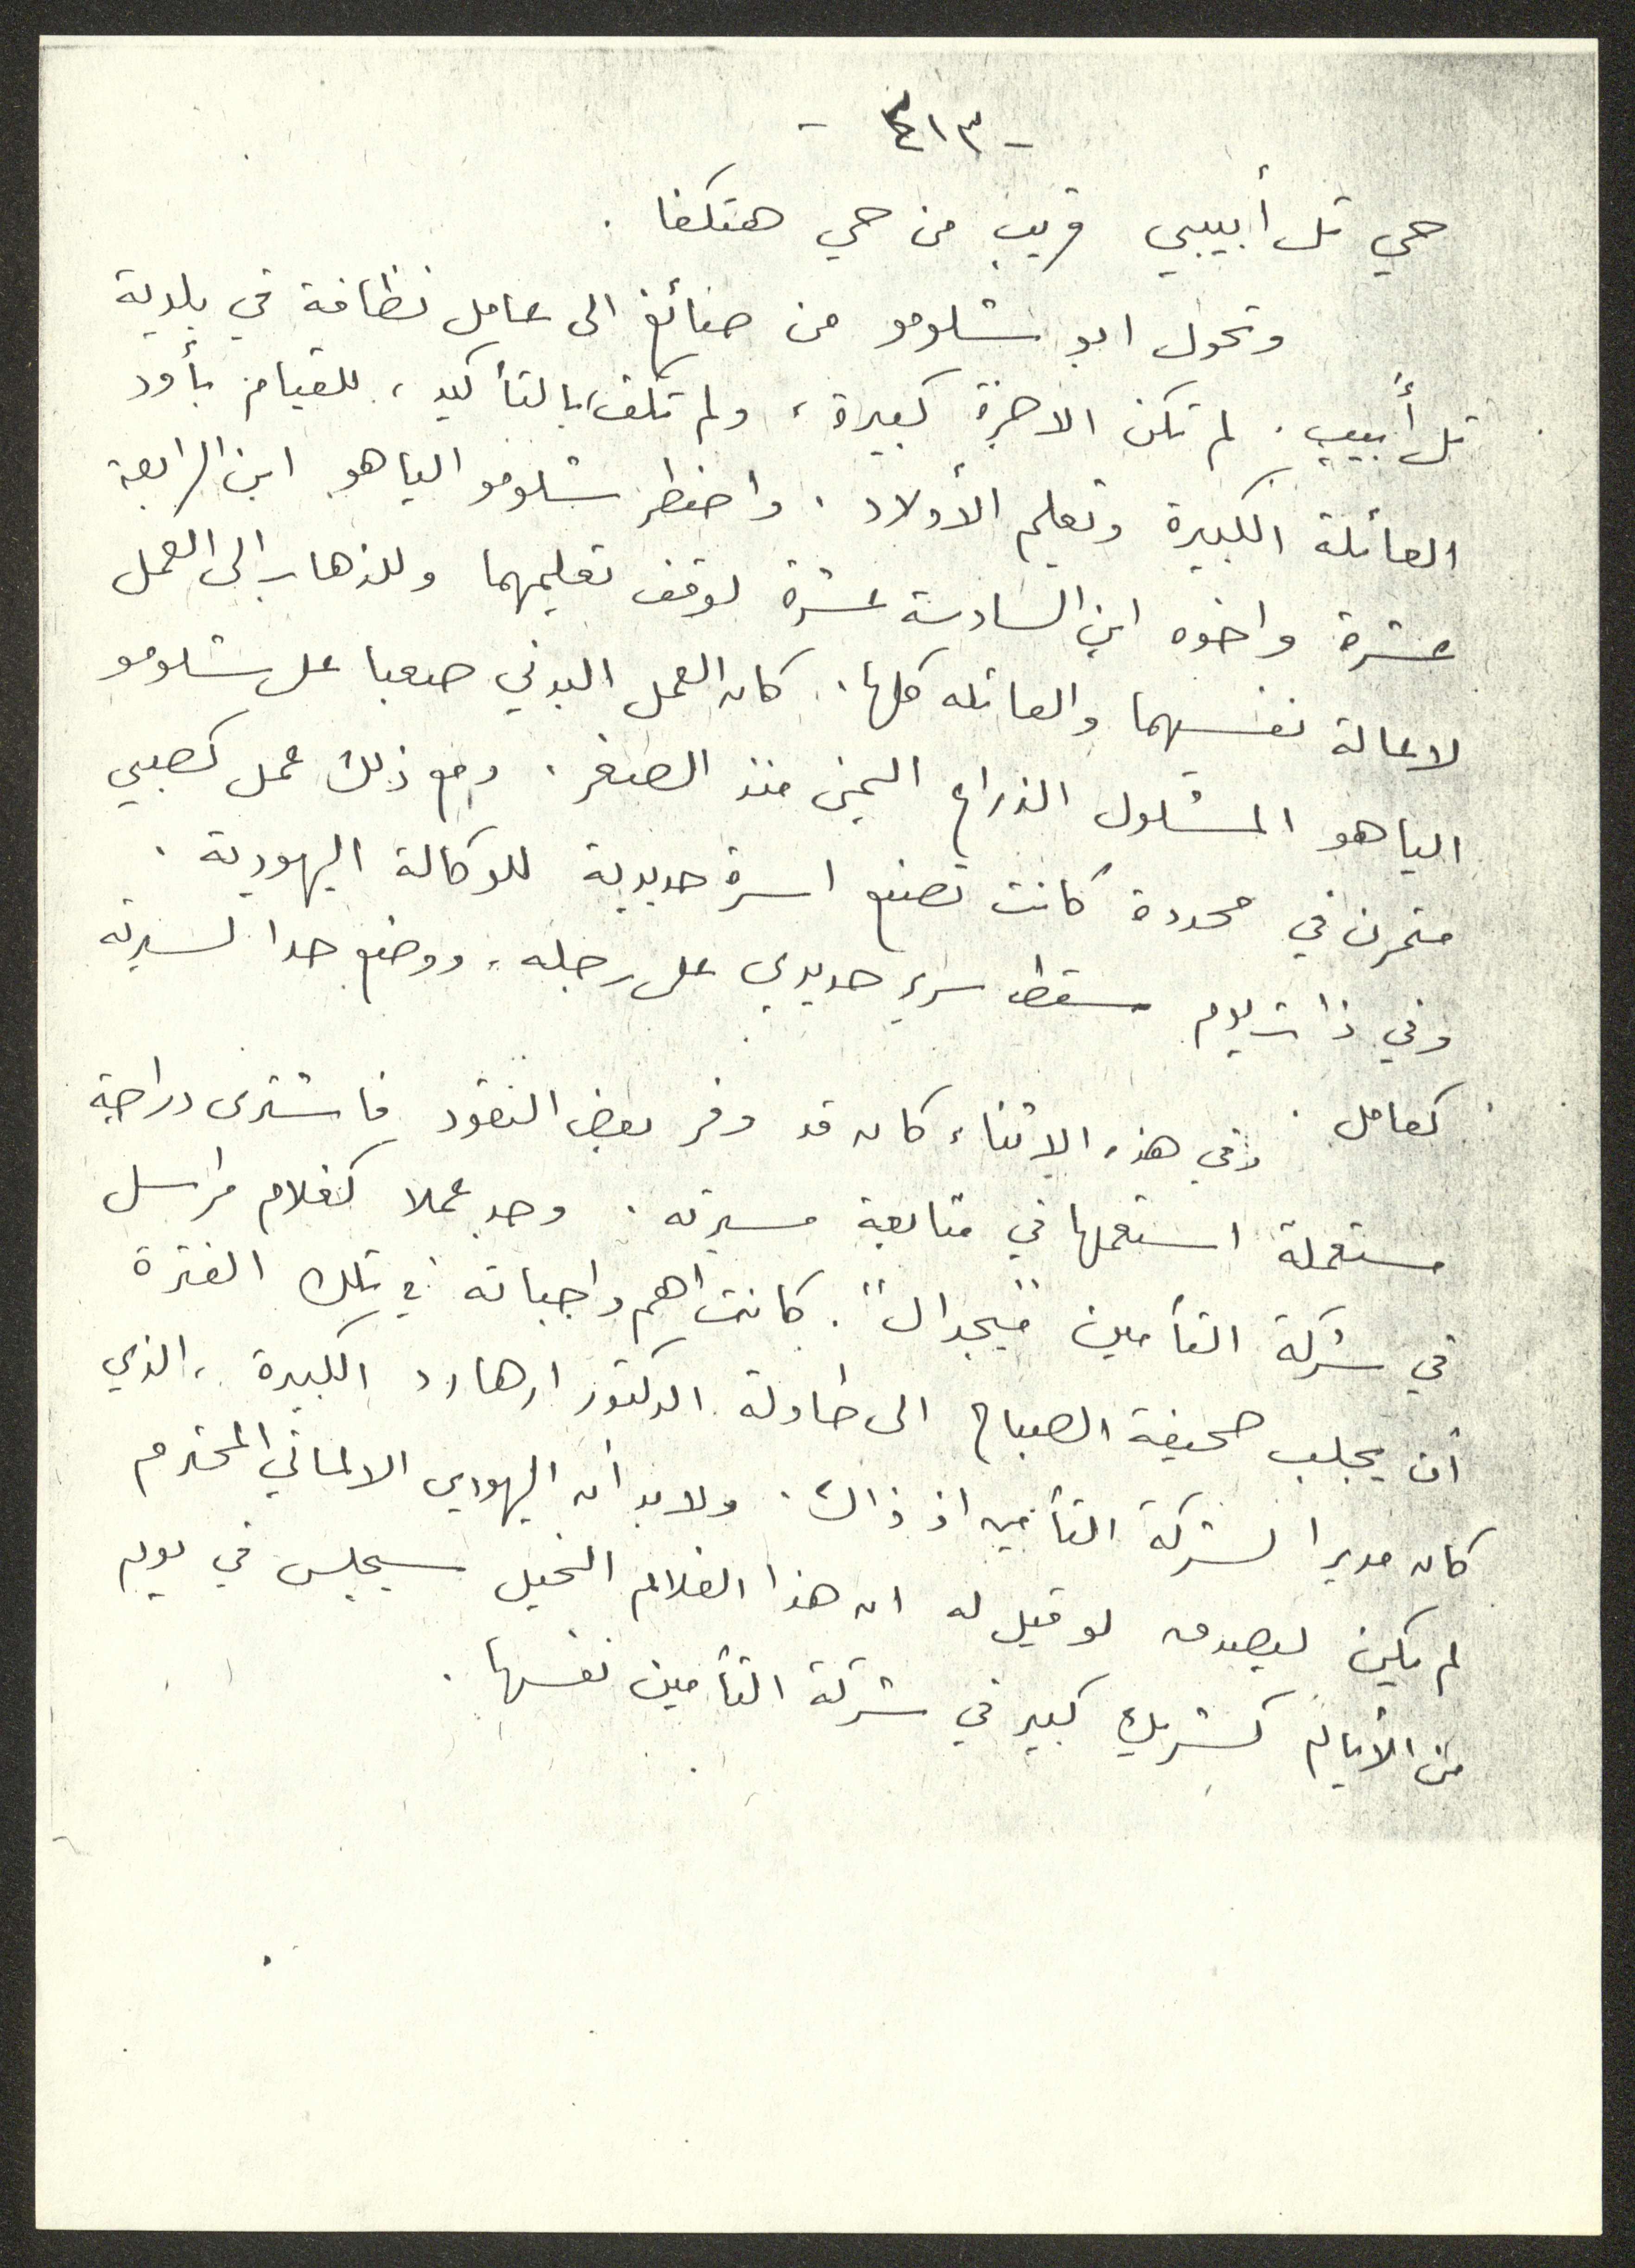 - ٤١٣ -
حي تل أبيبي قريب من حي هتكفا .
وتحول ابو شلومو من صائغ الى عامل نظافة في بلدية
تل أبيب . لم تكن الاجرة كبيرة ، ولم تكف، بالتأكيد ، للقيام بأود
العائلة الكبيرة وتعليم الأولاد . واضطر شلومو الياهو ابن الرابعة
عشرة واخوه ابن السادسة عشرة لوقف تعليمهما وللذهاب الى العمل
لاعالة نفسيهما والعائله كلها . كان العمل البدني صعبا على شلومو
الياهو المشلول الذراع اليمنى منذ الصغر . ومع ذلك عمل كصبي
متمرن في محددة كانت تصنع اسرة حديدية للوكالة اليهودية .
وفي ذات يوم سقط سرير حديدي على رجله ، ووضع حدا لسيرته
كعامل . وفي هذه الاثناء كان قد وفر بعض النقود فاشترى دراجة
مستعملة استعملها في متابعة مسيرته . وجد عملا كغلام مراسل
في شركة التأمين "ميجدال" . كانت اهم واجباته في تلك الفترة
أن يجلب صحيفة الصباح الى طاولة الدكتور ارهارد الكبيرة ، الذي
كان مديرا لشركة التأمين اذ ذاك . ولا بد أن اليهودي الالماني المحترم
لم يكن ليصدق لو قيل له ان هذا الغلام النحيل سيجلس في يوم
من الأيام كشريك كبير في شركة التأمين نفسها .